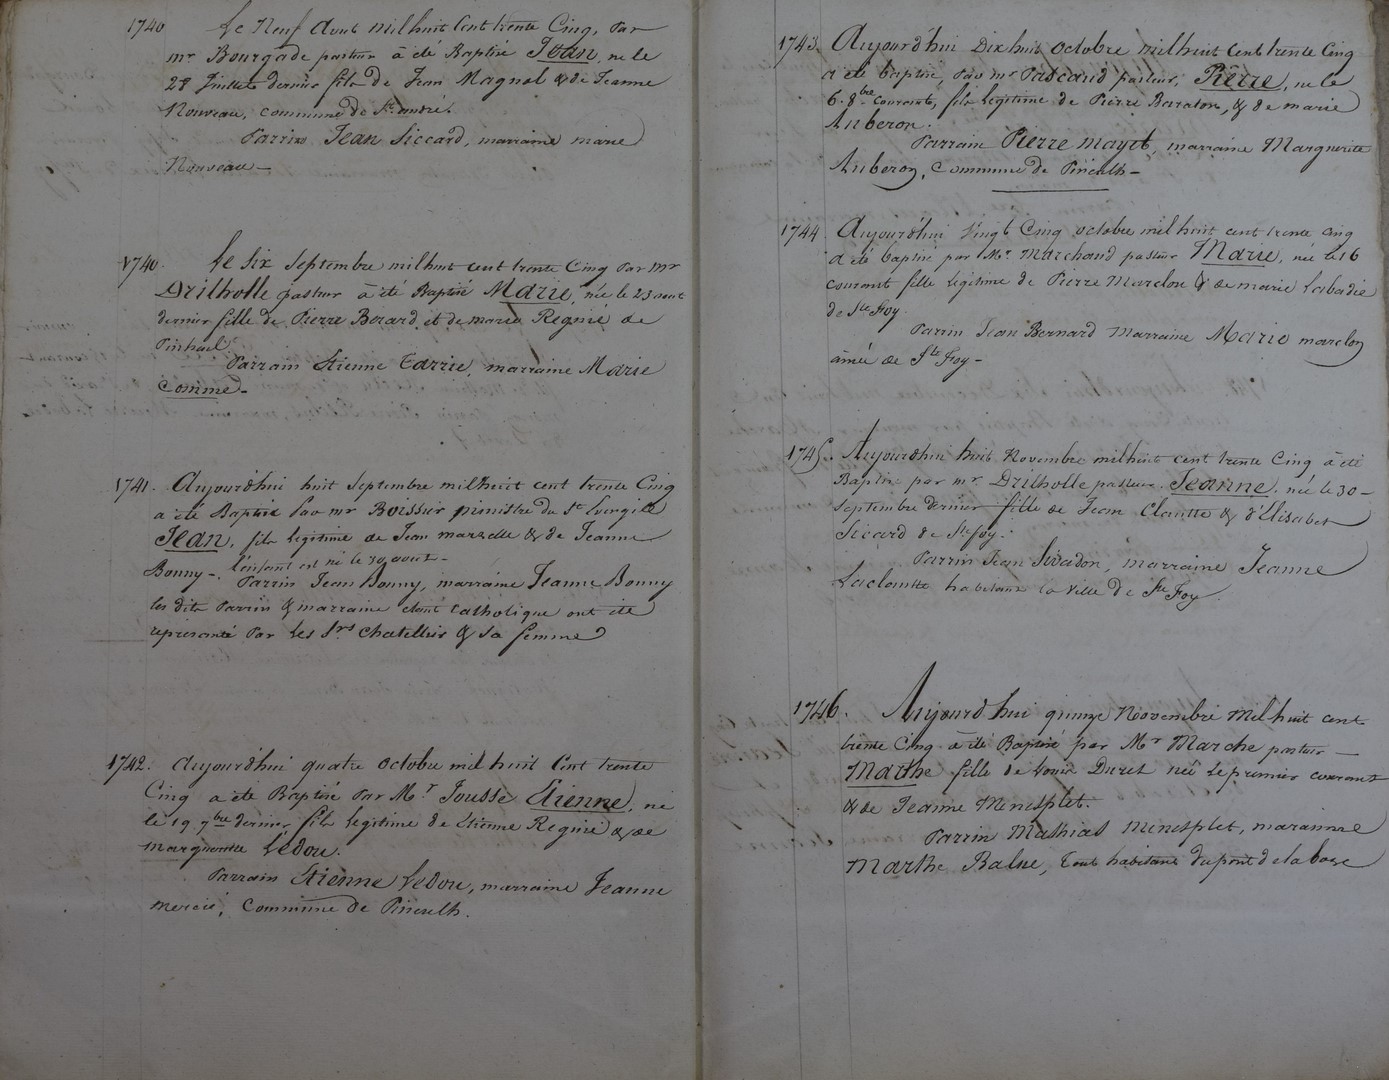 1740 Le Neuf Aout mil huit Cent trente Cinq, Par
mr Bourgade pasteur à été Baptisé Jean, né le
28 Juillet dernier fils de Jean Magnol & de Jeanne
Nouveau, commune de St. André.
Parrin Jean Siccard, marraine marie
Nouveau —
1740. Le six Septembre mil huit cent trente Cinq Par Mr
Drilholle pasteur à été Baptisé Marie, née le 23 aout
dernier fille de Pierre Berard et de marie Regnié de
Parrain Etienne Tarrie, marraine Marie
Comme —
1741. Aujourd'hui huit Septembre mil huit cent trente Cinq
a été Baptisé Par mr Boissier ministre du St Evangile
Jean, fils légitime de Jean marzelle & de Jeanne
Bonny —. l'enfant est né le 30 aout —
Parrin Jean Bonny, marraine Jeanne Bonny
les dits Parrin & marraine étant Catholique ont été
représenté Par Les Srs Chatellier & Sa femme
1742. Aujourd'hui quatre octobre mil huit Cent trente
Cinq a été Baptisé Par Mr Jousse Etienne, né
le 19 7bre dernier, fils légitime de Etienne Regnié & de
Marguerite Ledou.
Parrain Etienne Ledou, marraine Jeanne
mercié, Commune de Pineuilh.
1743. Aujourd'hui Dix huit Octobre mil huit Cent trente Cinq
a été baptisé, Par mr Pascaud pasteur, Pierre, né le
6. 8bre courant, fils légitime de Pierre Baraton, & de marie
Auberon.
Parrain Pierre mayet, marraine Marguerite
Auberon, Commune de Pineuilh —
1744 Aujourd'hui Vingt Cinq octobre mil huit cent trente cinq
a été baptisé par Mr Marchand pasteur Marie, née le 16
courant fille légitime de Pierre Marclou & de marie Labadie
de Ste foy.
Parrin Jean Bernard Marraine Marie marclou
ainée de Ste Foy —
1745. Aujourd'hui huit Novembre mil huit cent trente Cinq à été
Baptisé par mr. Drilholle pasteur. Jeanne, née le 30 —
Septembre dernier fille de Jean Clautte & d'Elisabet
Sicard de Ste foy.
Parrin Jean Sivadon, marraine Jeanne
Laclautte habitant la ville de Ste Foy
1746. Aujourd'hui quinze Novembre Mil huit cent
trente Cinq à été Baptisé par Mr Marche pasteur —
Marthe fille de Louis Duret née le premier courant
& de Jeanne Menesplet.
Parrin Mathias Menesplet, maraine
Marthe Balue, tout habitant du pont de la bose